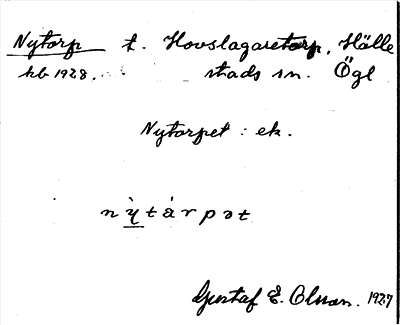 Nytorp t. Hovslagaretorp, Hälle
kb 1928. stads sn. Ögl
Nytorpet : ek.
nỳtárpət
Gustaf E. Olsson. 1927